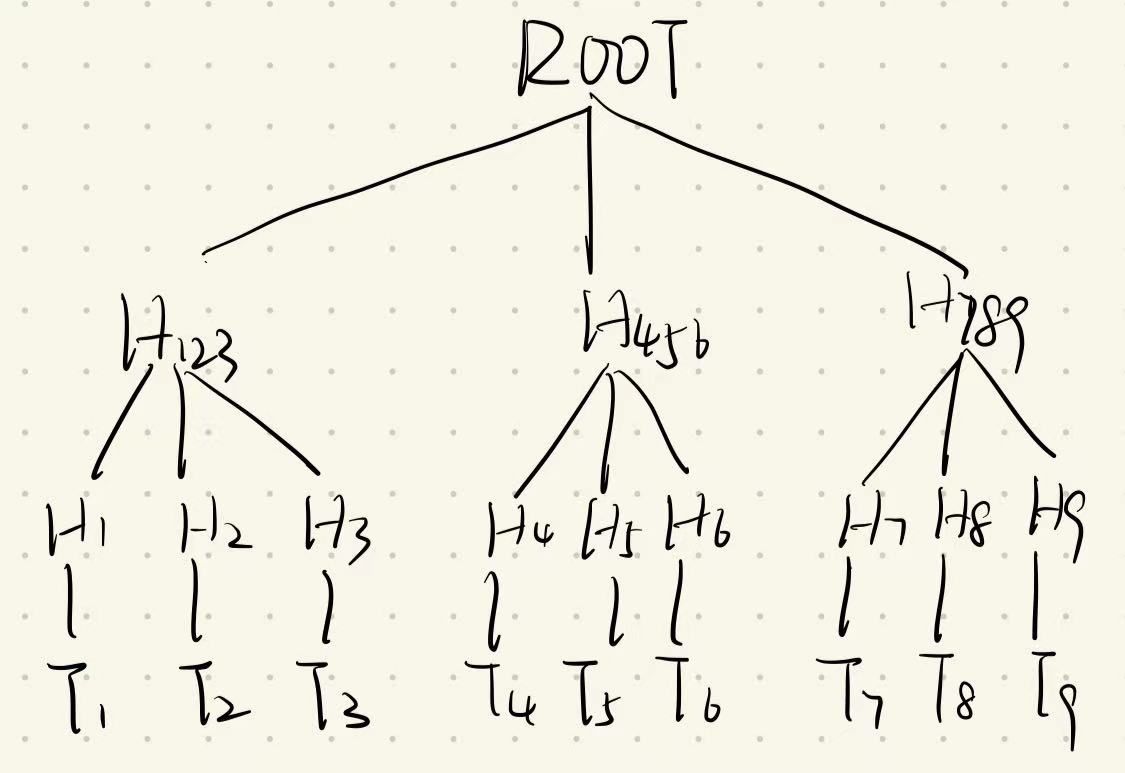 ROOT
H123 H456 H789
H1 H2 H3 H4 H5 H6 H7 H8 H9
T1 T2 T3 T4 T5 T6 T7 T8 T9